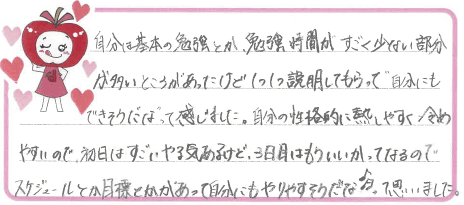 自分は基本の勉強とか、勉強時間がすごく少ない部分
が多いところがあったけど1つ1つ説明してもらって自分にも
できそうだなって感じました。自分の性格的に熱しやすく冷め
やすいので、初日はすごいやる気あるけど、3日目はもういいかってなるので
スケジュールとか目標とかがあって自分にもやりやすそうだなぁって思いました。